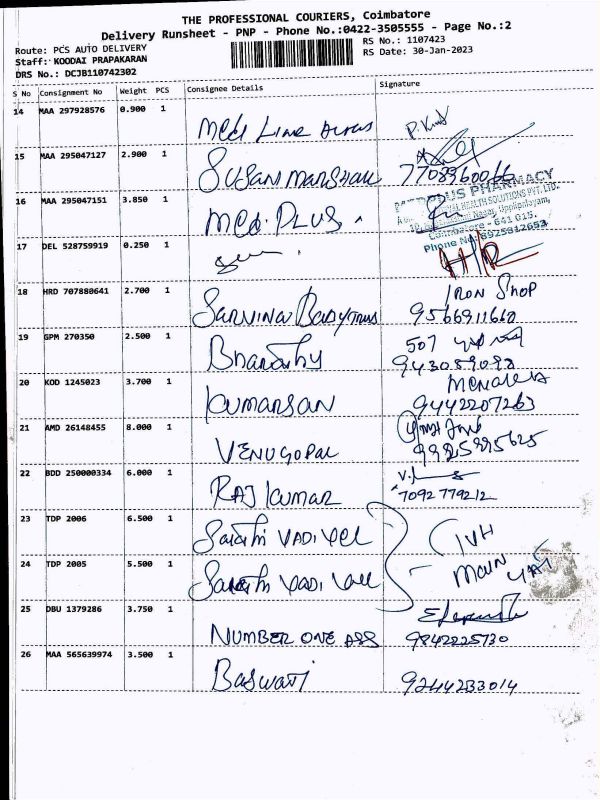 THE PROFESSIONAL COURIERS, Coimbatore
Delivery Runsheet - PNP - Phone No.:0422-3505555 - Page No.:2
Route: PCS AUTO DELIVERY
RS No.: 1107423
Staff: KOODAI PRAPAKARAN
RS Date: 30-Jan-2023
DRS No.: DCJB110742302
S No Consignment No Weight PCS Consignee Details Signature
14 MAA 297928576 0.900 1
Med Line
15 MAA 295047127 2.900 1
SUSAN MARSHALL 7708960066
16 MAA 295047151 3.850 1
MEDPLUS PHARMACY
Med: PLUS
HEALTH SOLUTIONS PVT. LTD.
Nagar, Uppilipalayam,
Coimbatore - 641 015.
17 DEL 528759919 0.250 1
Phone No: 8925912653
18 HRD 707880641 2.700 1
IRON SHOP
9566911660
19 GPM 270350 2.500 1
507
Bharathy
20 KOD 1245023 3.700 1
Kumarsan 9442207263
21 AMD 26148455 8.000 1
VENUGOPAL 99925895625
22 BDD 250000334 6.000 1
RAJ KUMAR 7092779212
23 TDP 2006 6.500 1
Sakthi VADIVEL
24 TDP 2005 5.500 1
Sakthi
25 DBU 1379286 3.750 1
NUMBER ONE ASS 9842225730
26 MAA 565639974 3.500 1
Baswati 9244233014